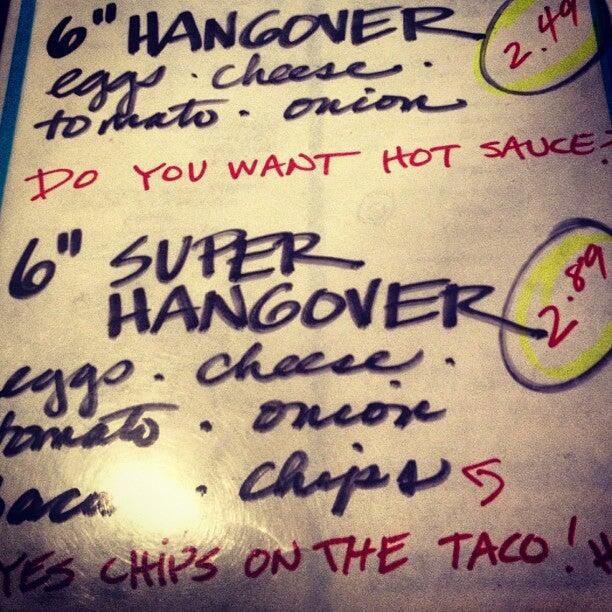 6" HANGOVER 2.49
eggs · cheese ·
tomato · onion
DO YOU WANT HOT SAUCE
6" SUPER
HANGOVER 2.89
eggs · cheese ·
tomato · onion
· chips
YES CHIPS ON THE TACO!